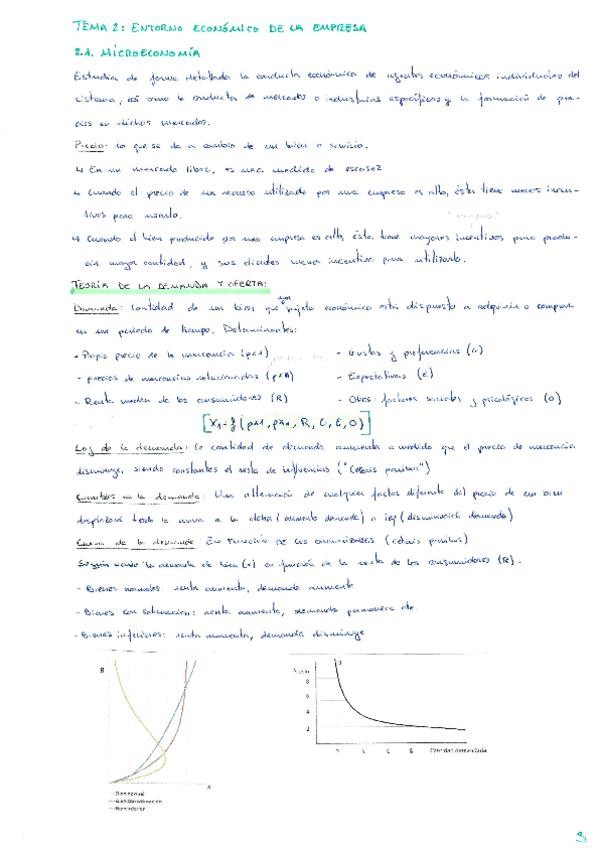 TEMA 2: ENTORNO ECONÓMICO DE LA EMPRESA
2.1. MICROECONOMÍA
Estudia de forma detallada la conducta económica de agentes económicos individuales del
sistema, así como la conducta de mercados o industrias específicas y la formación de pre-
cios en dichos mercados.
Precio: lo que se da a cambio de un bien o servicio.
↳ En un mercado libre, es una medida de escasez
↳ Cuando el precio de un recurso utilizado por una empresa es alto, ésta tiene menos incen-
tivos para usarlo.
↳ Cuando el bien producido por una empresa es alto, ésta tiene mayores incentivos para produ-
cir mayor cantidad, y sus clientes menor incentivo para utilizarlo.
TEORÍA DE LA DEMANDA Y OFERTA:
Demanda: Cantidad de un bien que sujeto económico está dispuesto a adquirir o comprar
en un periodo de tiempo. Determinantes:
- Propio precio de la mercancía (px1)
- Gustos y preferencias (G)
- precios de mercancías relacionadas (pxn)
- Expectativas (E)
- Renta media de los consumidores (R)
- Otros: factores sociales y psicológicos (O)
[X1 = f (px1, pxn, R, G, E, O)]
Ley de la demanda: la cantidad de demanda aumenta a medida que el precio de mercancía
disminuye, siendo constantes el resto de influencias ("Ceteris paribus")
Cambios en la demanda: Una alteración de cualquier factor diferente del precio de un bien
desplazará toda la curva a la dcha (aumento demanda) o izq (disminución demanda)
Curva de la demanda: EN FUNCIÓN DE LOS CONSUMIDORES (ceteris paribus)
la demanda de bien (x) en función de la renta de los consumidores (R).
- Bienes normales: renta aumenta, demanda aumenta
- Bienes con saturación: renta aumenta, demanda permanece cte.
- Bienes inferiores: renta aumenta, demanda disminuye
R
8
6
4
2
Cantidad demandada
Bien normal
Bien con saturación
Bien inferior
3